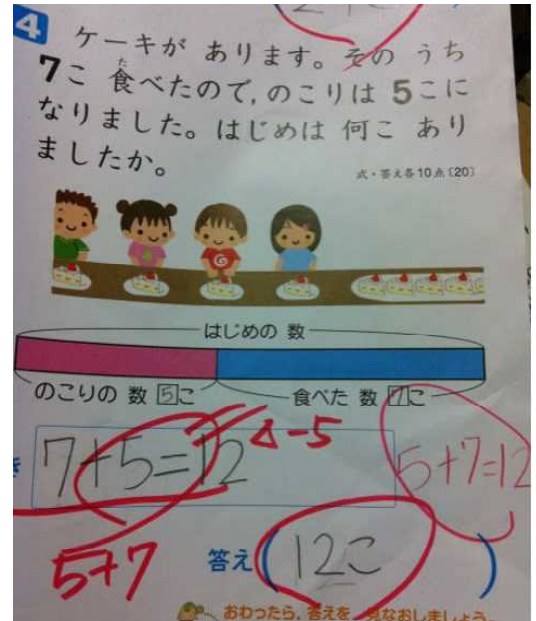 4
ケーキが あります。その うち
7こ 食べたので, のこりは 5こに
なりました。はじめは 何こ あり
ましたか。
式・答え各10点〔20〕
G
はじめの 数
のこりの 数 5こ
食べた 数 7こ
7+5=12
△-5
5+7=12
5+7
答え ( 12こ )
おわったら, 答えを 見なおしましょう。